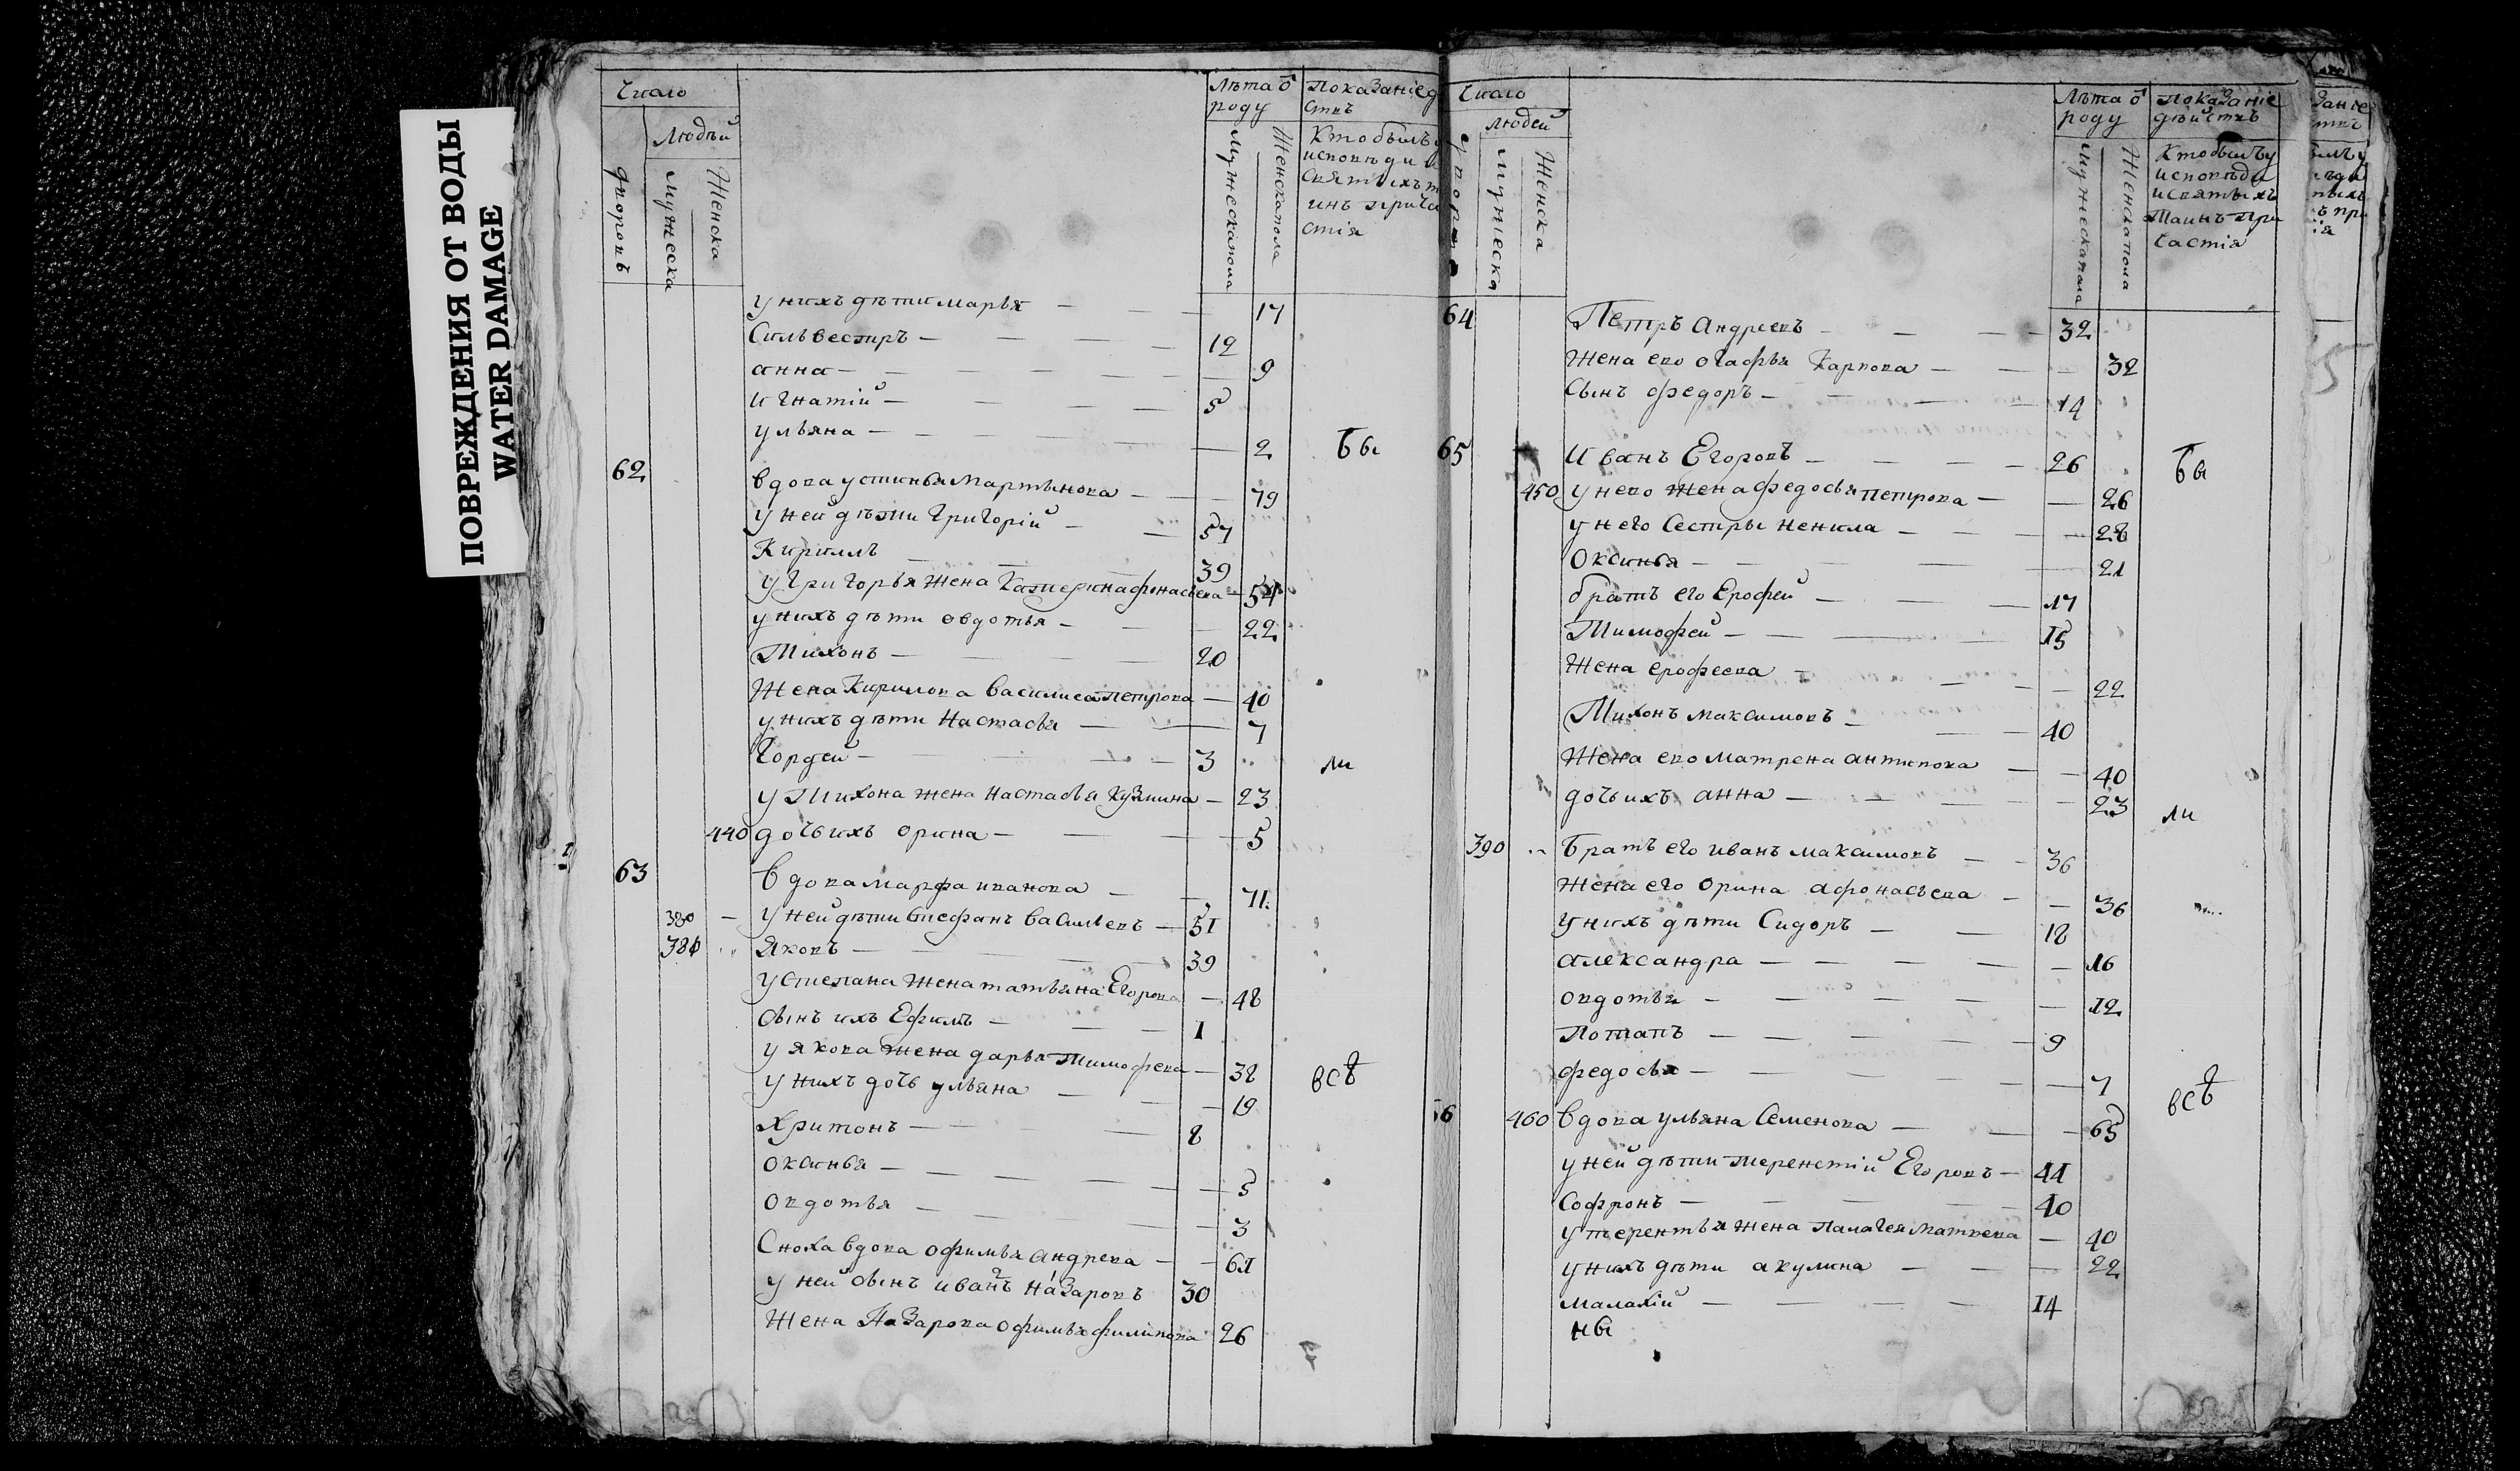 ПОВРЕЖДЕНИЯ ОТ ВОДЫ
WATER DAMAGE
Число
Людѣй
дворовъ
мужеска
Женска
Лѣта ѿ
роду
Мужескапола
Женскапола
Показаніе д
ств
Кто былъ у
исповѣди и
святыхъ т
инъ прича
стія
у нихъ дѣти марья — 17
Сильвестръ — 12
анна — 9
игнатій — 5
ульяна — 2
Бы
62 вдова устинья Мартынова — 79
у ней дѣти Григорій — 57
Кириллъ — 39
у Григорья жена Катерина афонасьева — 54
у нихъ дѣти овдотья — 22
Тихонъ — 20
Жена Кирилова василиса петрова — 40
у нихъ дѣти Настасья — 7
Гордей — 3
ли
у Тихона жена настасья кузмина — 23
440 дочь ихъ орина — 5
63 вдова марфа иванова — 71
380 у ней дѣти стефанъ васильевъ — 51
381 Яковъ — 39
у степана жена татьяна Егорова — 48
сынъ ихъ Ефимъ — 1
у якова жена дарья тимофева — 38
всѣ
у нихъ дочь ульяна — 19
Хритонъ — 8
оксинья — 5
овдотья — 3
Сноха вдова офимья андрева — 61
у ней сынъ иванъ назаровъ 30
Жена Назарова офимья филипова 26
Число
людей
мужеска
Женска
Лѣта ѿ
роду
мужескапола
Женскапола
показаніе
дѣйств
Кто былъ у
исповѣди
и святыхъ
Таинъ при
частія
64 Петръ Андреевъ — 32
Жена ево огафья Карпова — 32
Сынъ федоръ — 14
65 Иванъ Егоровъ — 26
Бы
450 у нево жена федосья петрова — 26
у него сестры ненила — 28
Оксинья — 21
братъ его Ерофей — 17
Тимофей — 15
Жена ерофеева — 22
Тихонъ максимовъ — 40
Жена ево матрена антипова — 40
дочь ихъ анна — 23
ли
390 Братъ его иванъ максимовъ — 36
Жена его орина афонасьева — 36
у нихъ дѣти Сидоръ — 18
александра — 16
овдотья — 12
Потапъ — 9
федосья — 7
всѣ
66 460 вдова ульяна Семенова — 65
у ней дѣти терентій Егоровъ — 41
Софронъ — 40
у терентья жена палагея матвева — 40
у нихъ дѣти акулина — 22
малахій — 14
ны